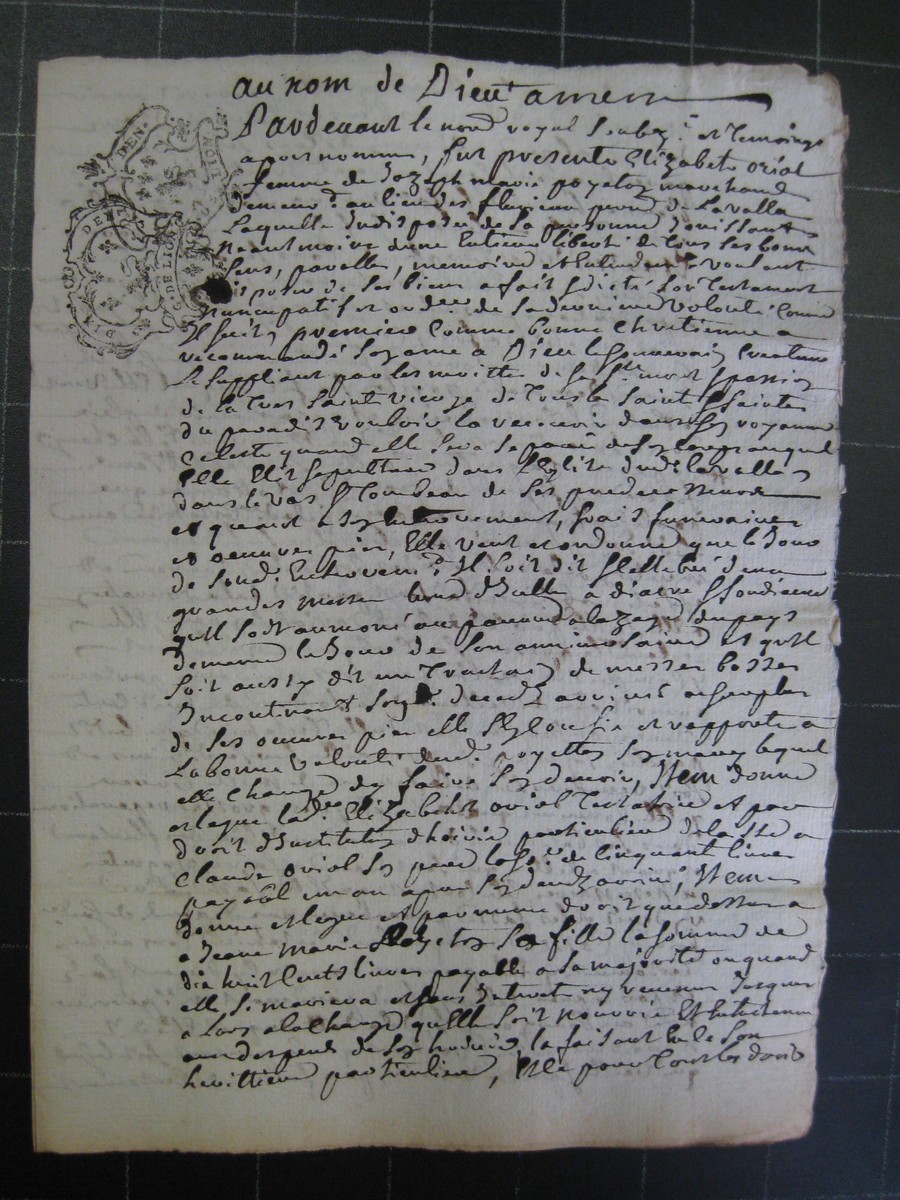 au nom de Dieu amen
Pardevant le nore royal soubzne et temoings
apres nommes, fut presente Elizabete oriol
femme de Jozeph marie poyeton marchand
demeurt au lieu des flurieu parroisse de Lavalla
Laquelle Indisposée de sa personne Jouissant
neantmoins dune Entiere liberté de tous ses bons
sens, parolles, memoire et Entendemt voulant
disposer de ses biens a fait & dicté son testament
nuncupatif et ordce de sa derniere volonté Comme
Il suit, premiere Comme bonne Chretienne a
recommandé son ame a Dieu le souverain Createur
Le suppliant par les merittes de ses ste mort & passion
de la tres sainte vierge de tous les saints & saintes
du paradis vouloir la recevoir dans son royaume
Celeste quand elle sera separée de son corps auquel
Elle Elit sepulture dans l'Eglise dudt lavalla
dans le vas & tombeau de ses predecesseurs
et quant a son Enterrement, frais funeraires
et oeuvres pies, Elle veut et ordonne que le Jour
de sondt Enterremt Il soit dit & celebré deux
grandes messes a diacre & soudiacre
qu'Il soit aumoné aux pauvres a la facon du pays
de meme le Jour de son anniversaire et qu'Il
soit aussy dit un trentain de messes basses
Incontinent son decedz arrivé et surplus
de ses oeuvres pies elle s'en confie et rapporte a
La bonne volonté dudt poyetton son mary lequel
elle charge dy faire son devoir, Item donne
et legue ladte Elizabeth oriol testatrice et par
droit d'Institution d'hoirie particuliere delaisse a
Claude oriol son pere la some de Cinquant livres
payable un an apres son decedz arrivé, Item
donne et legue et par meme droit que dessus
a Jeane marie poyeton sa fille la somme de
dix huit Cents livres payable a sa majorité ou quand
elle se mariera et sans Interet ny revenus Jusques
a Lors a la charge qu'elle soit nourrie et Entretenue
aux depends de son hoirie, la faisant En ce son
heritiere particuliere, Et ce pour tous les droits